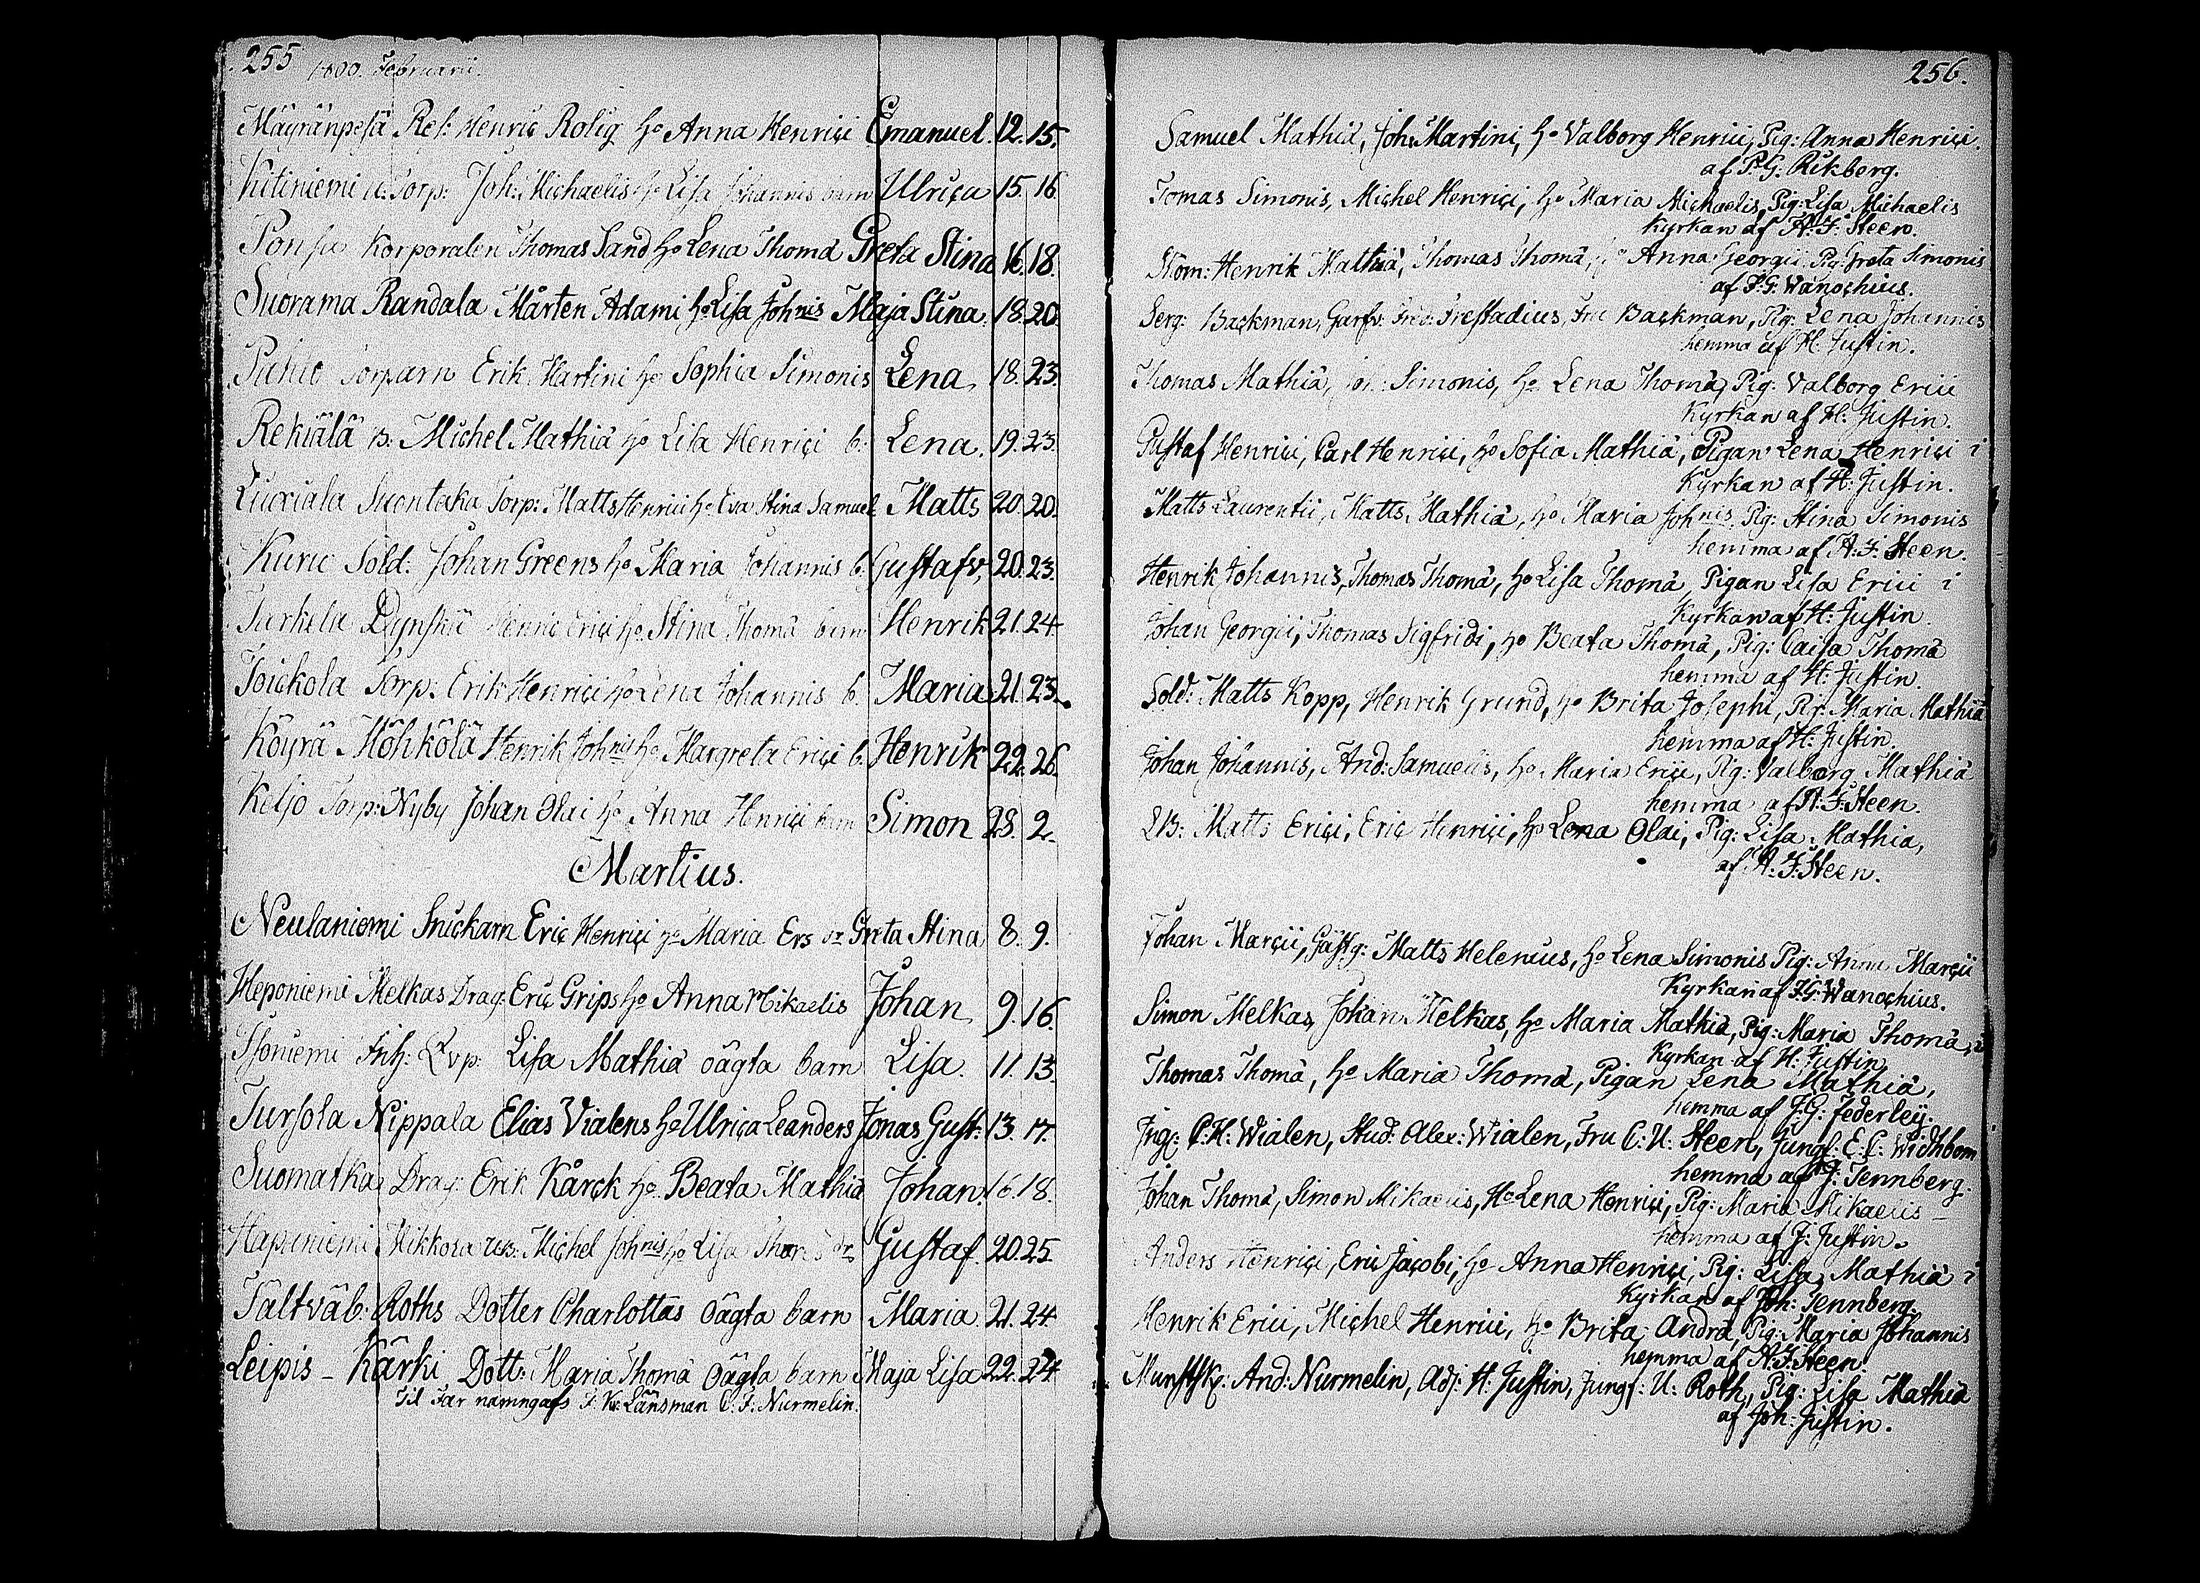 255 1800. Februarii.
Mäyränpesä Ref: Henric Rolig ho Anna Henrici Emanuel. 12. 15.
Kutiniemi u. Torp: Joh: Michaelis ho Lisa Johannis barn Ulrica 15. 16
Ponsa Korporalen Thomas Sand ho Lena Thomä Greta Stina 16. 18.
Suorama Randala Mårten Adami ho Lisa Johnis Maja Stina. 18. 20.
Torparn Erik Martini ho Sophia Simonis Lena 18. 23.
Rekiälä B. Michel Mathiä ho Lisa Henrici b. Lena. 19. 23.
Suontaka Torp: Matts Henrici ho Eva Stina Samuel Matts 20. 20.
Sold: Johan Greens ho Maria Johannis b. Gustafv, 20. 23.
Henric Erici ho Stina Thomä barn Henrik 21. 24.
Toickola Torp: Erik Henrici ho Lena Johannis b. Maria 21. 23.
Köyrä Möhkölä Henrik Johnis ho Margreta Erici b. Henrik 22. 26.
Keljo Torp: Nyby Johan Olai ho Anna Henrici barn Simon 28. 2.
Martius.
Neulaniemi Snickarn Eric Henrici ho Maria Ers dr Greta Stina 8. 9.
Heponiemi Melkas Drag: Eric Grips ho Anna Mikaelis Johan 9. 16.
Isoniemi Inh: Qvp. Lisa Mathiä oägta barn Lisa. 11. 13.
Tursola Nippala Elias Vialens ho Ulrica Leanders Jonas Gust: 13. 17.
Suomatka Drag: Erik Kårck ho Beata Mathiä Johan. 16. 18.
Hapuniemi Mikkola Michel Johnis ho Lisa dr Gustaf. 20. 25
Fältväb: Roths Dotter Charlottas oägta barn Maria 21. 24.
Leipis - Kärki Dott: Maria Thomä Oägta barn Maja Lisa 22. 24.
Til Far namngafs F. K: Länsman C: F: Nurmelin.
256.
Samuel Mathiä, Joh: Martini, ho Valborg Henrici, Pig: Anna Henrici.
af P: G: Rikberg.
Tomas Simonis, Michel Henrici, ho Maria Michaelis, Pig: Lisa Michaelis
Kyrkan af A: F: Steen.
Nom: Henrik Mathiä, Thomas Thomä, Anna Georgii, Pig: Greta Simonis
af J: G: Wanochius.
Serg: Backman, Garfv: Frestadius, Fru Backman, Pig: Lena Johannis
hemma af H. Justin.
Thomas Mathiä, Simonis, ho Lena Thomä, Pig: Valborg Erici
Kyrkan af H: Justin.
Gustaf Henrici, Carl Henrici, ho Sofia Mathiä, Pigan Lena Henrici i
Kyrkan af H: Justin.
Matts Laurentii, Matts Mathiä, ho Maria Johnis. Pig: Stina Simonis
hemma af A: F: Steen.
Henrik Johannis, Thomas Thomä, ho Lisa Thomä Pigan Lisa Erici i
Kyrkan af H: Justin.
Johan Georgii, Thomas Sigfridi, ho Beata Thomä, Pig: Caisa Thomä
hemma af H: Justin.
Sold: Matts Kopp, Henrik Grund, ho Brita Josephi, Pig: Maria Mathiä
hemma af H: Justin.
Johan Johannis, And: Samuelis, ho Maria Erici, Pig: Valborg Mathiä
hemma af A: F: Steen.
Matts Erici, Eric Henrici, ho Lena Olai, Pig: Lisa Mathiä,
af A: F: Steen.
Johan Marcii, Gästg: Matts Helenius, ho Lena Simonis Pig: Anna Marcii
Kyrkan af J: G: Wanochius.
Simon Melkas, Johan Melkas, ho Maria Mathiä, Pig: Maria Thomä, i
Kyrkan af H. Justin
Thomas Thomä, ho Maria Thomä, Pigan Lena Mathiä,
hemma af J: G: Federley.
Ing: C: H: Wialen, Stud: Alex: Wialen, Fru C: U: Steen, Jungf: E: C: Widhbom
hemma af J: Tennberg.
Johan Thomä, Simon Mikaelis, Ho Lena Henrici, Pig: Maria Mikaelis -
hemma af J: Justin.
Anders Henrici, Eric Jacobi, ho Anna Henrici, Pig: Lisa Mathiä i
Kyrkan af Joh: Tennberg.
Henrik Erici, Michel Henrici, ho Brita Andrä, Pig: Maria Johannis
hemma af A: F: Steen.
Munstsk: And: Nurmelin, Adj: H. Justin, Jungf: U: Roth, Pig: Lisa Mathiä
af Joh: Justin.